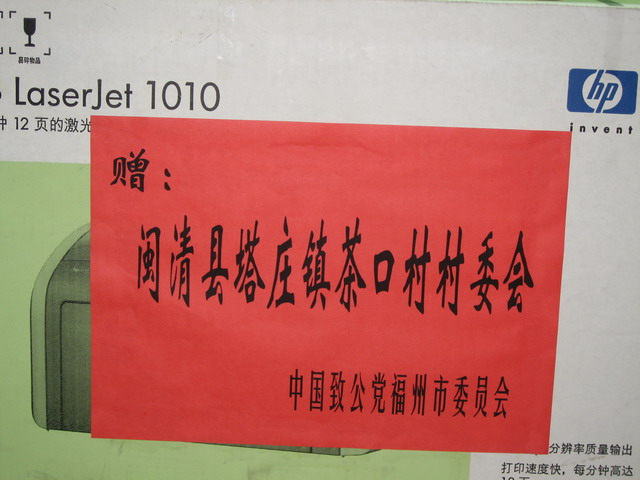 易碎物品
LaserJet 1010
hp
invent
钟 12 页的激光
赠：
闽清县塔庄镇茶口村村委会
中国致公党福州市委员会
分辨率质量输出
打印速度快，每分钟高达